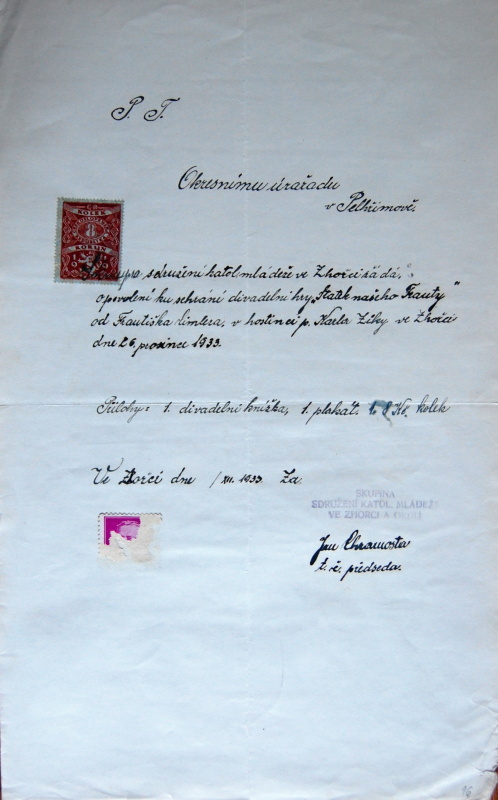 P. T.
Okresnímu úřadu
v Pelhřimově.
KOLEK
8
KORUN
Skupina sdružení katol. mládeže ve Zhořci žádá
o povolení ku sehrání divadelní hry „Statek našeho Franty"
od Františka Cimlera, v hostinci p. Karla Ziky ve Zhořci
dne 26. prosince 1933.
Přílohy: 1. divadelní knížka, 1. plakát. 1. 8 Kč. kolek
Ve Zhořci dne /XII. 1933. Za
SKUPINA
SDRUŽENÍ KATOL. MLÁDEŽE
VE ZHORCI A OKOLÍ
Jan Chramosta
t. č. předseda.
96